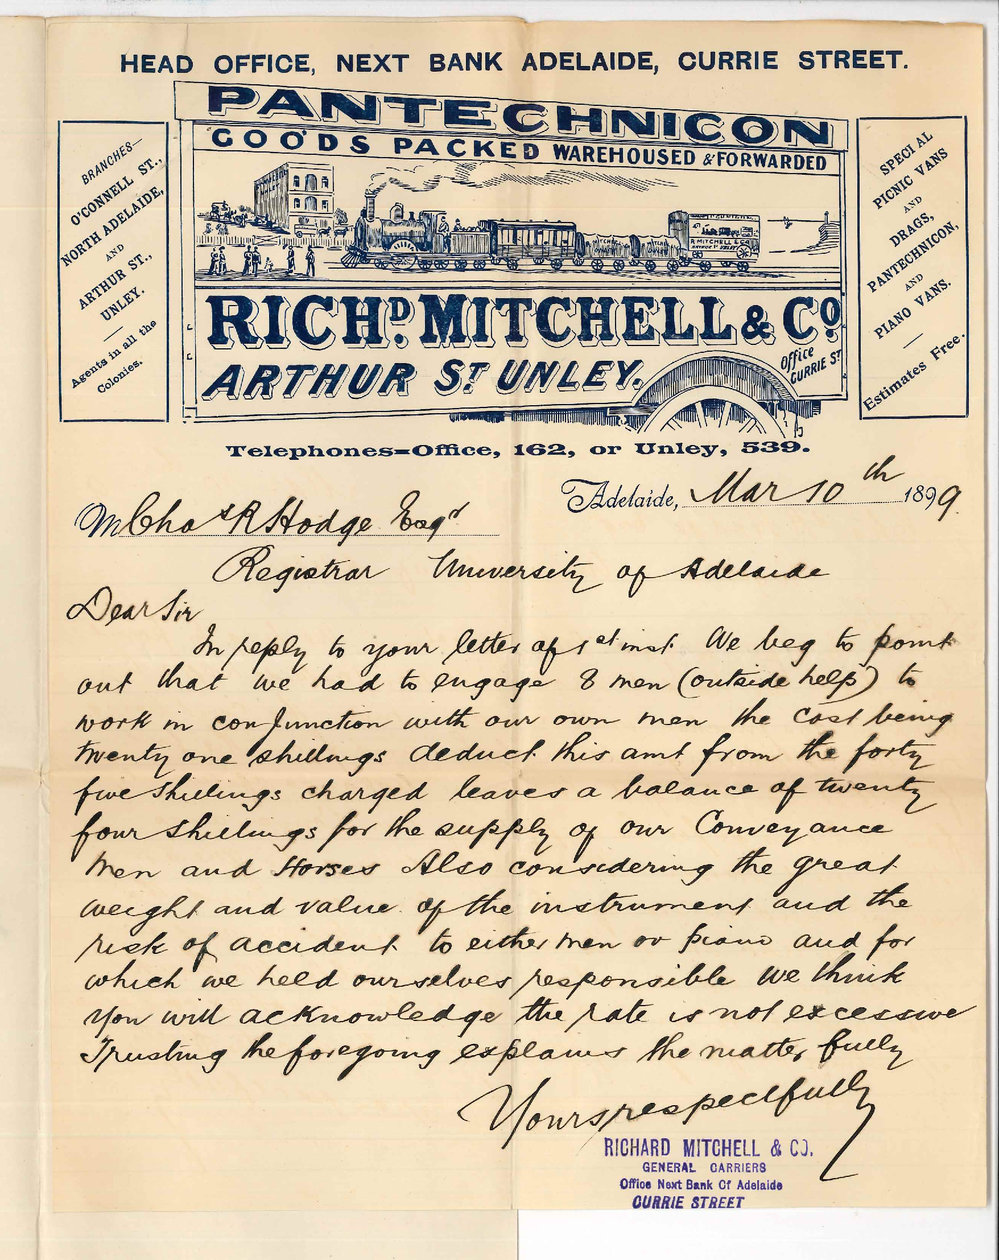 HEAD OFFICE, NEXT BANK ADELAIDE, CURRIE STREET.
PANTECHNICON
GOODS PACKED WAREHOUSED & FORWARDED
BRANCHES—
O'CONNELL ST.,
NORTH ADELAIDE,
AND
ARTHUR ST.,
UNLEY.
Agents in all the
Colonies.
R. MITCHELL & CO
ARTHUR ST UNLEY
SPECIAL
PICNIC VANS
AND
DRAGS,
PANTECHNICON,
AND
PIANO VANS.
Estimates Free.
RICHD. MITCHELL & CO
ARTHUR ST UNLEY.
Office
CURRIE ST
Telephones=Office, 162, or Unley, 539.
Adelaide, Mar 10th 1899.
M Chas R Hodge Esqr
Registrar University of Adelaide
Dear Sir
In reply to your letter of 1st inst. We beg to point
out that we had to engage 8 men (outside help) to
work in conjunction with our own men the cost being
twenty one shillings deduct this amt from the forty
five shillings charged leaves a balance of twenty
four shillings for the supply of our Conveyance
Men and Horses Also considering the great
weight and value of the instrument and the
risk of accident to either men or piano and for
which we held ourselves responsible We think
you will acknowledge the rate is not excessive
Trusting the foregoing explains the matter fully
Yours respectfully
RICHARD MITCHELL & CO.
GENERAL CARRIERS
Office Next Bank Of Adelaide
CURRIE STREET